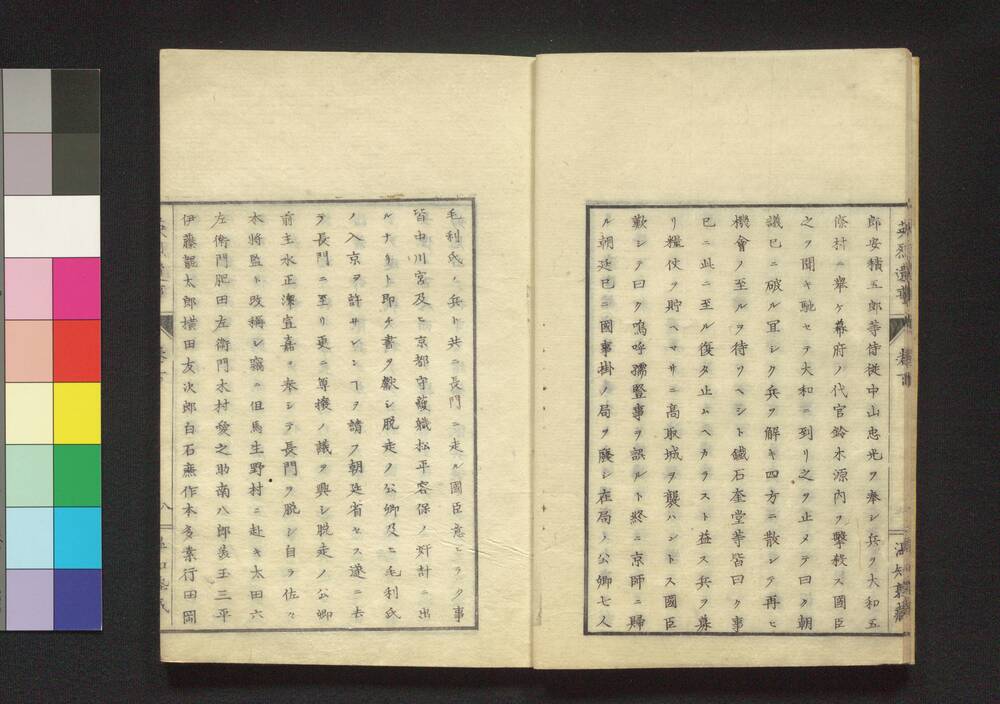 郎安積五郎等侍従中山忠光ヲ奉シ兵ヲ大和五
條村ニ舉ケ幕府ノ代官鈴木源内ヲ擊殺ス國臣
之ヲ聞キ馳セテ大和ニ到リ之ヲ止メテ曰ク朝
議已ニ破ル冝シク兵ヲ解キ四方ニ散シテ再ヒ
機會ノ至ルヲ待ツヘシト鐵石奎堂等皆曰ク事
已ニ此ニ至ル復タ止ムヘカラスト益ス兵ヲ募
リ糧仗ヲ貯ヘマサニ高取城ヲ襲ハントス國臣
歎シテ曰ク嗚呼孺豎事ヲ誤ルト終ニ京師ニ歸
ル朝廷已ニ國事掛ノ局ヲ廢シ在局ノ公卿七人
毛利氏ノ兵ト共ニ長門ニ走ル國臣意ヒラク事
皆中川宮及ヒ京都守護職松平容保ノ奸計ニ出
ルナリト即チ書ヲ獻シ脱走ノ公卿及ヒ毛利氏
ノ入京ヲ許サレンヿヲ請フ朝廷省セス遂ニ去
テ長門ニ至リ更ニ尊攘ノ議ヲ興シ脱走ノ公卿
前主水正澤宣嘉ヲ奉シテ長門ヲ脱シ自ラ佐々
木將監ト改稱シ竊ニ但馬生野村ニ赴キ太田六
左衛門肥田左衛門木村愛之助南八郎裳玉三平
伊藤龍太郎横田友次郎白石廉作本多素行田岡